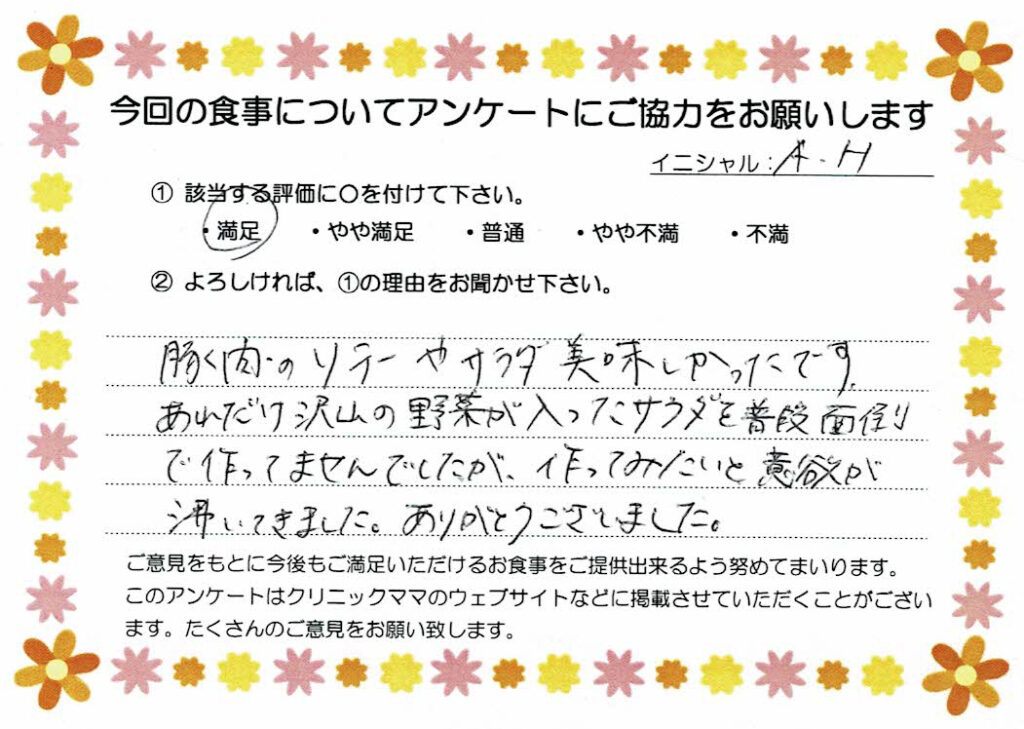 今回の食事についてアンケートにご協力をお願いします
イニシャル：A.H
① 該当する評価に○を付けて下さい。
・満足 ・やや満足 ・普通 ・やや不満 ・不満
② よろしければ、①の理由をお聞かせ下さい。
豚肉のソテーやサラダ美味しかったです。
あれだけ沢山の野菜が入ったサラダを普段面倒
で作ってませんでしたが、作ってみたいと意欲が
沸いてきました。ありがとうございました。
ご意見をもとに今後もご満足いただけるお食事をご提供出来るよう努めてまいります。
このアンケートはクリニックママのウェブサイトなどに掲載させていただくことがござい
ます。たくさんのご意見をお願い致します。